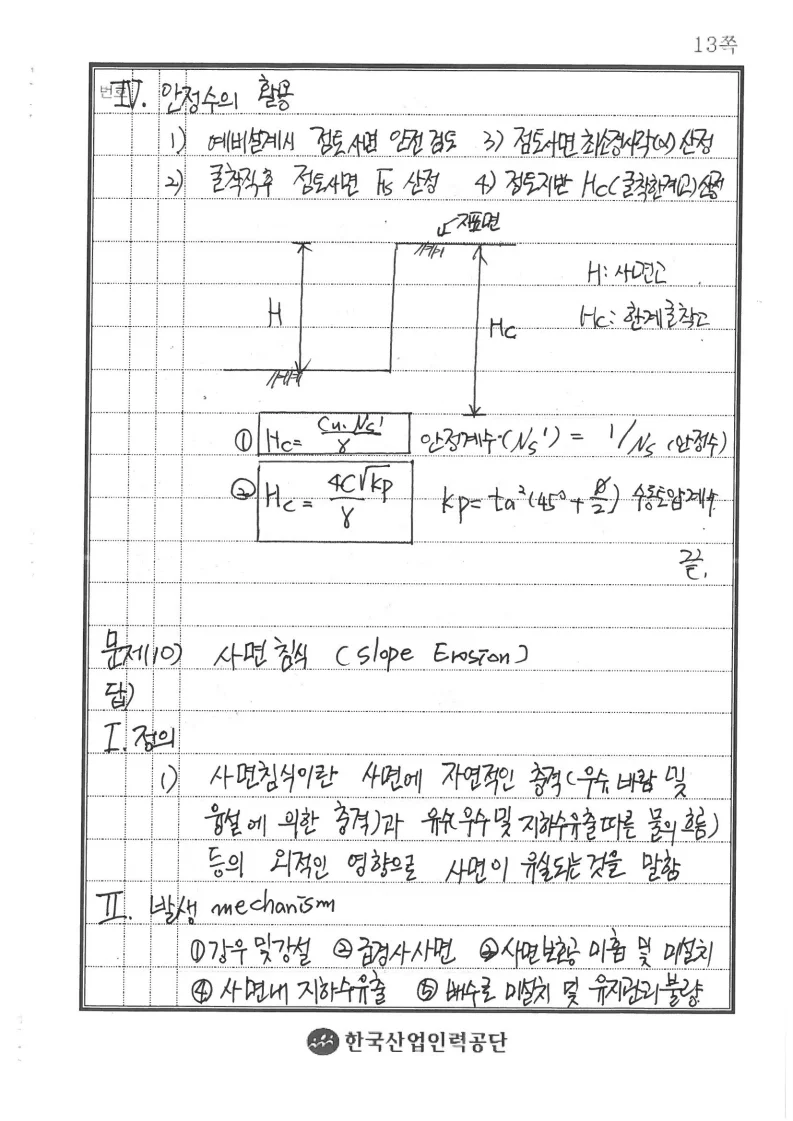 13쪽
번호
IV. 안정수의 활용
1) 예비설계시 점토사면 안전검토 3) 점토사면 최소경사각(α) 산정
2) 굴착직후 점토사면 Fs 산정 4) 점토지반 Hc(굴착한계고) 산정
지표면
H
Hc
H: 사면고
Hc: 한계굴착고
① Hc= Cu·Ns'/γ 안정계수(Ns') = 1/Ns (안정수)
② Hc= 4C√kp/γ kp= ta²(45°+ø/2) 수동토압계수
끝.
문제10) 사면침식 (slope Erosion)
답)
I. 정의
1) 사면침식이란 사면에 자연적인 충격(우수 바람 및
융설에 의한 충격)과 유수(우수 및 지하수유출따른 물의 흐름)
등의 외적인 영향으로 사면이 유실되는 것을 말함
II. 발생 mechanism
①강우 및 강설 ②급경사사면 ③사면보호공 미흡 및 미설치
④ 사면내 지하수유출 ⑤ 배수로 미설치 및 유지관리 불량
한국산업인력공단